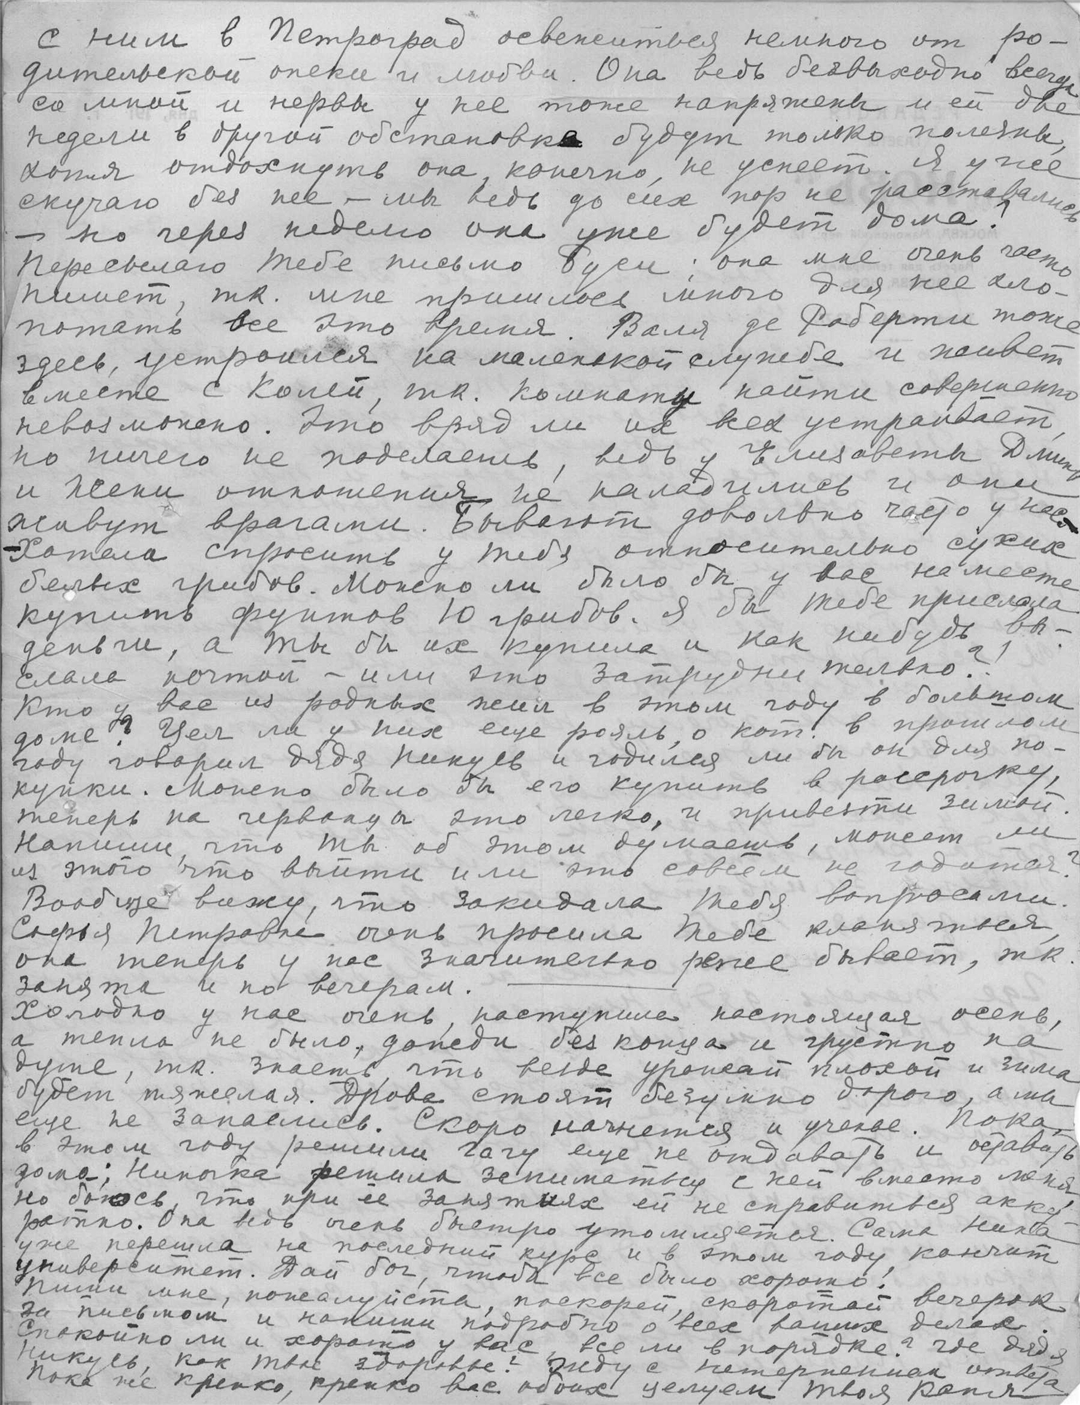 с ним в Петроград освежиться немного от ро-
дительской опеки и любви. Она ведь безвыходно всегда
со мной и нервы у нее тоже напряжены и ей две
недели в другой обстановке будут только полезны,
хотя отдохнуть она, конечно, не успеет. Я уже
скучаю без нее – мы ведь до сих пор не расставались
– но через неделю она уже будет дома!
Пересылаю тебе письмо Буси; она мне очень часто
пишет, т.к. мне пришлось много для нее хло-
потать все это время. Валя де Роберти тоже
здесь, устроился на маленькой службе и живет
вместе с Колей, т.к. комнату найти совершенно
невозможно. Это вряд ли их всех устраивает,
но ничего не поделаешь, ведь у Елизаветы Дмитр
и Жени отношения не наладились и они
живут врагами. Бывают довольно часто у нас.
Хотела спросить у тебя относительно сухих
белых грибов. Можно ли было бы у вас на месте
купить фунтов 10 грибов. Я бы тебе прислала
деньги, а ты бы их купила и как нибудь вы-
слала почтой – или это затруднительно?
Кто у вас из родных жил в этом году в большом
доме? Цел ли у них еще рояль, о кот. в прошлом
году говорил дядя Никусь и годился ли бы он для по-
купки. Можно было бы его купить в рассрочку,
теперь на червонцы это легко, и привезти зимой.
Напиши, что ты об этом думаешь, может ли
из этого что выйти или это совсем не годится?
Вообще вижу, что закидала тебя вопросами.
Софья Петровна очень просила тебе кланяться,
она теперь у нас значительно реже бывает, т.к.
занята и по вечерам.
Холодно у нас очень, наступила настоящая осень,
а тепла не было, дожди без конца и грустно на
душе, т.к. знаешь что везде урожай плохой и зима
будет тяжелая. Дрова стоят безумно дорого, а мы
еще не запаслись. Скоро начнется и ученье. Пока,
в этом году решили Гагу еще не отдавать и оставить
дома; Ниночка решила заниматься с ней вместо меня,
но боюсь, что при ее занятиях ей не справиться акку-
ратно. Она ведь очень быстро утомляется. Сама Нина
уже перешла на последний курс и в этом году кончит
университет. Дай бог, чтобы все было хорошо!
Пиши мне, пожалуйста, поскорей, скоротай вечерок
за письмом и напиши подробно о всех ваших делах.
Спокойно ли и хорошо у вас, все ли в порядке? Где дядя
Никусь, как твое здоровье? Жду с нетерпением ответа
Пока же крепко, крепко вас обоих целуем Твоя Капя